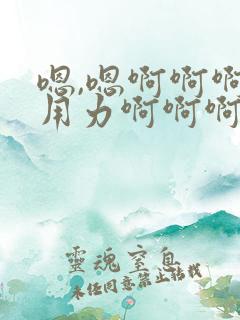 嗯,嗯啊啊啊
用力啊啊啊
靈魂窒息
未经同意禁止转载